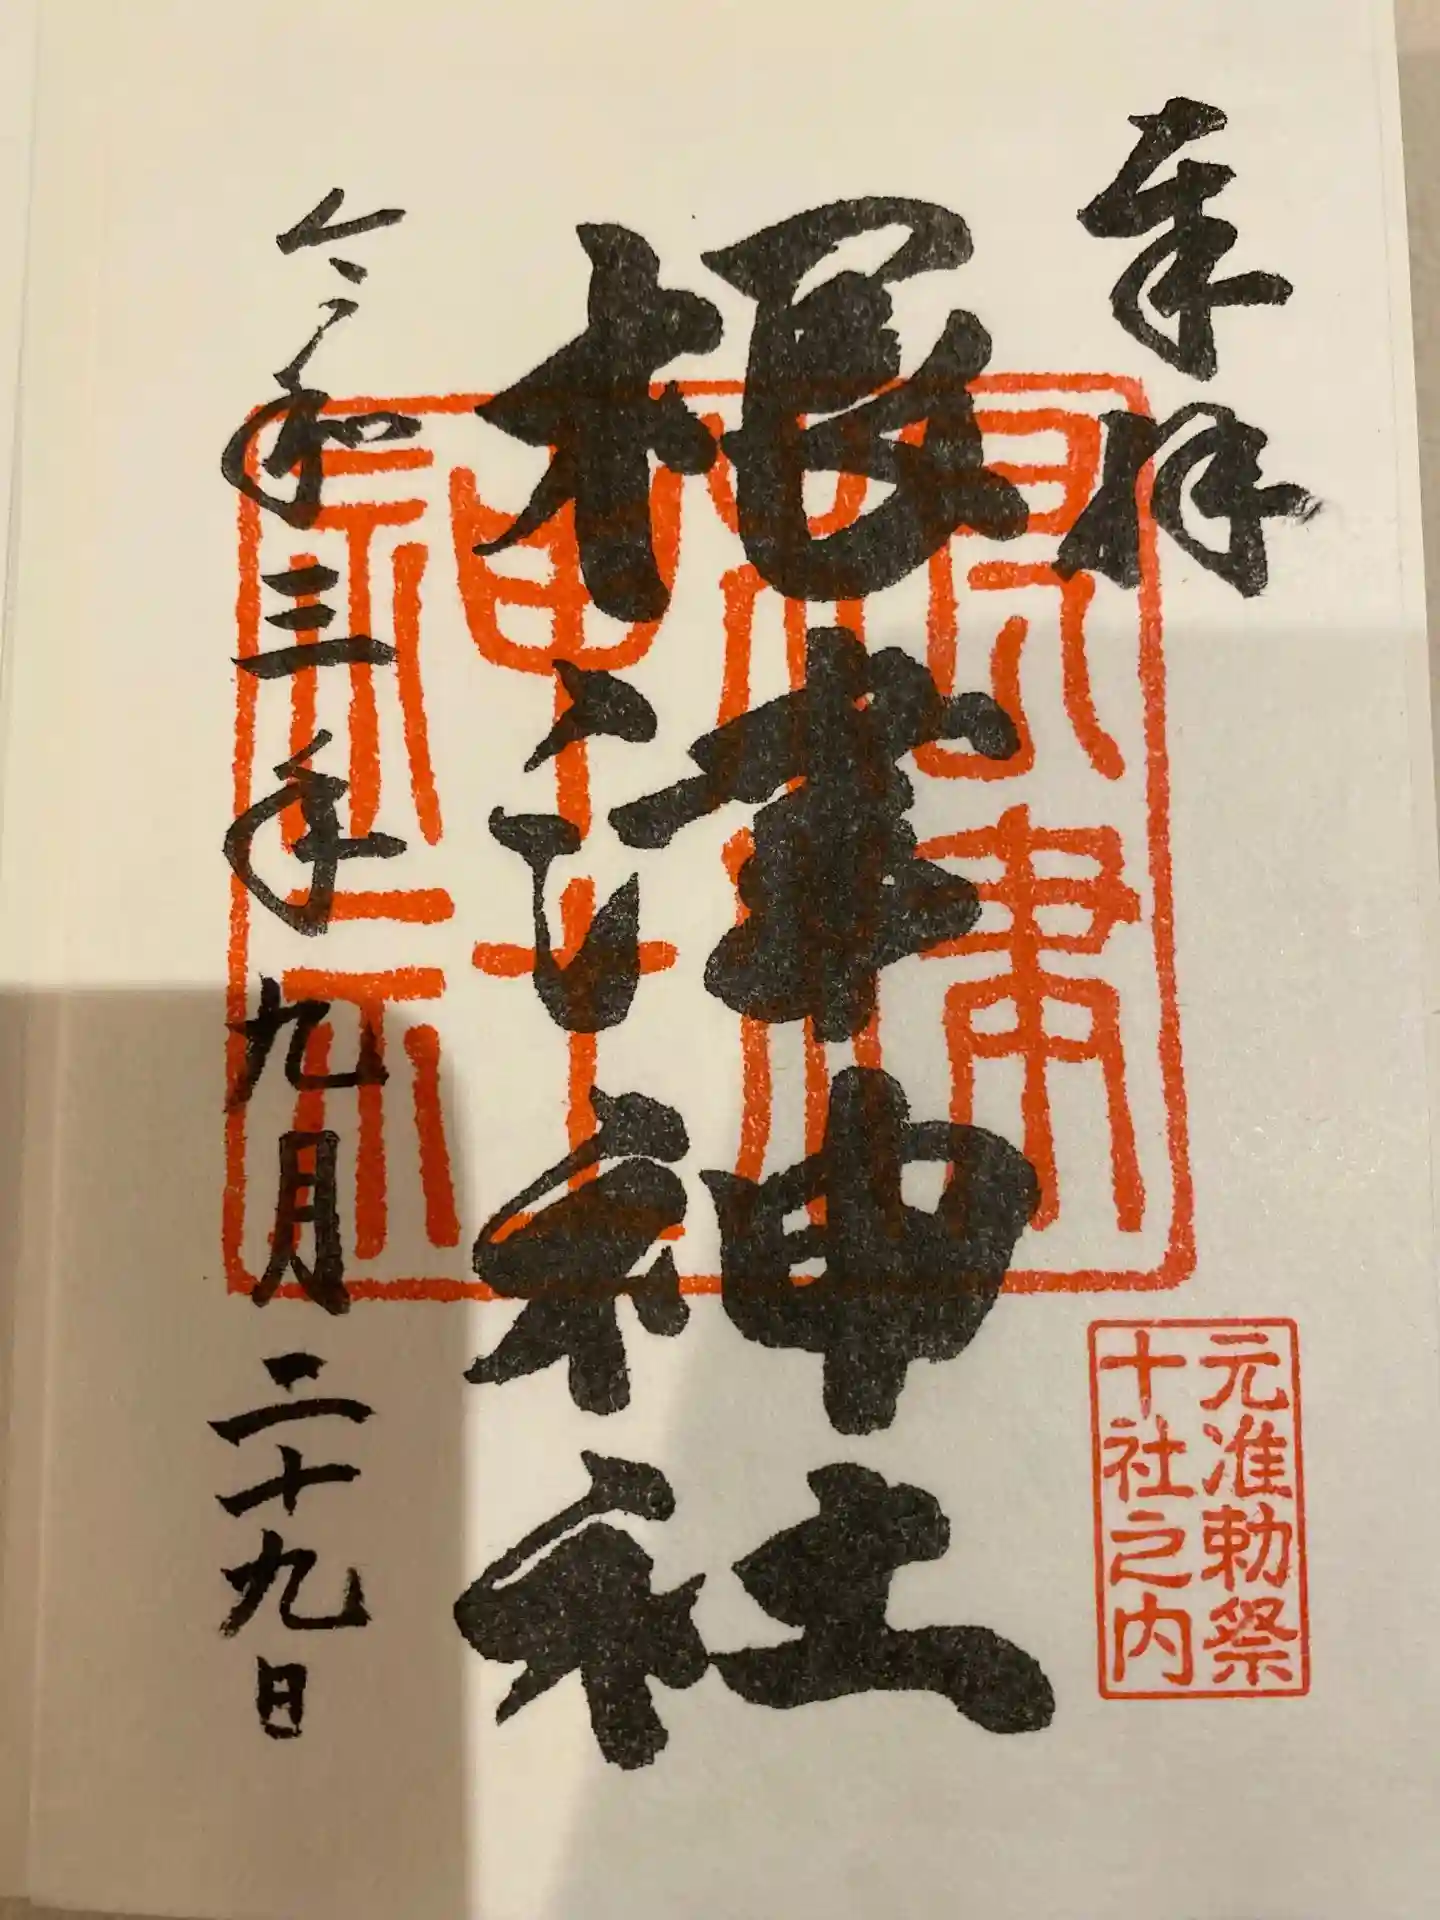 奉拝
元准勅祭
十社之内
根津神社
令和三年九月二十九日
根津神社